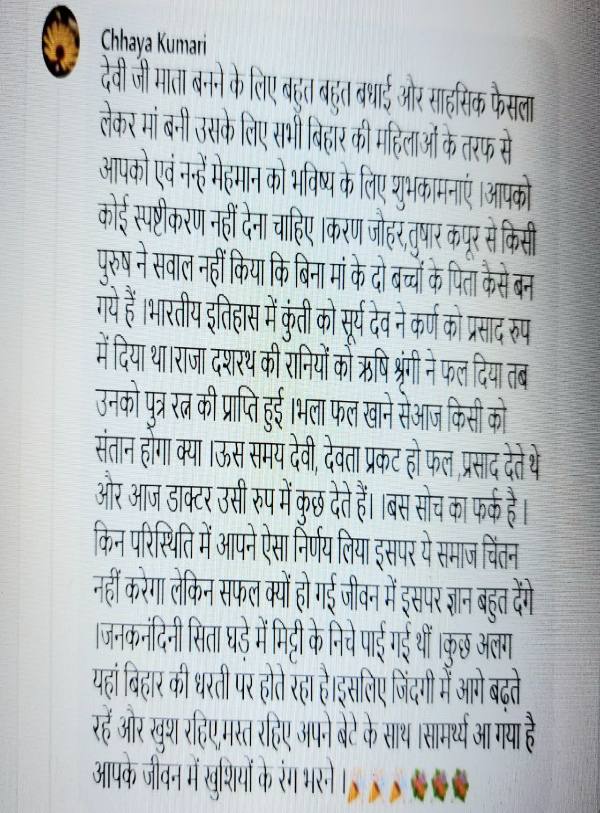 Chhaya Kumari
देवी जी माता बनने के लिए बहुत बहुत बधाई और साहसिक फैसला
लेकर मां बनी उसके लिए सभी बिहार की महिलाओं के तरफ से
आपको एवं नन्हें मेहमान को भविष्य के लिए शुभकामनाएं ।आपको
कोई स्पष्टीकरण नहीं देना चाहिए ।करण जौहर,तुषार कपूर से किसी
पुरुष ने सवाल नहीं किया कि बिना मां के दो बच्चों के पिता कैसे बन
गये हैं ।भारतीय इतिहास में कुंती को सूर्य देव ने कर्ण को प्रसाद रुप
में दिया था।राजा दशरथ की रानियों को ऋषि श्रृंगी ने फल दिया तब
उनको पुत्र रत्न की प्राप्ति हुई ।भला फल खाने सेआज किसी को
संतान होगा क्या ।ऊस समय देवी, देवता प्रकट हो फल ,प्रसाद देते थे
और आज डाक्टर उसी रुप में कुछ देते हैं। ।बस सोच का फर्क है ।
किन परिस्थिति में आपने ऐसा निर्णय लिया इसपर ये समाज चिंतन
नहीं करेगा लेकिन सफल क्यों हो गई जीवन में इसपर ज्ञान बहुत देंगे
।जनकनंदिनी सिता घड़े में मिट्टी के निचे पाई गई थीं ।कुछ अलग
यहां बिहार की धरती पर होते रहा है।इसलिए जिंदगी में आगे बढ़ते
रहें और खुश रहिए,मस्त रहिए अपने बेटे के साथ ।सामर्थ्य आ गया है
आपके जीवन में खुशियों के रंग भरने ।